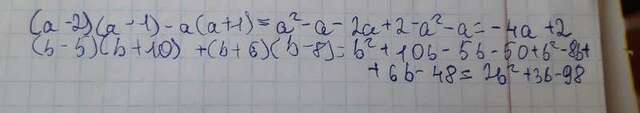 (a-2)(a-1)-a(a+1)=a²-a-2a+2-a²-a=-4a+2
(b-5)(b+10)+(b+6)(b-8)=b²+10b-5b-50+b²-8b+
+6b-48=2b²+3b-98